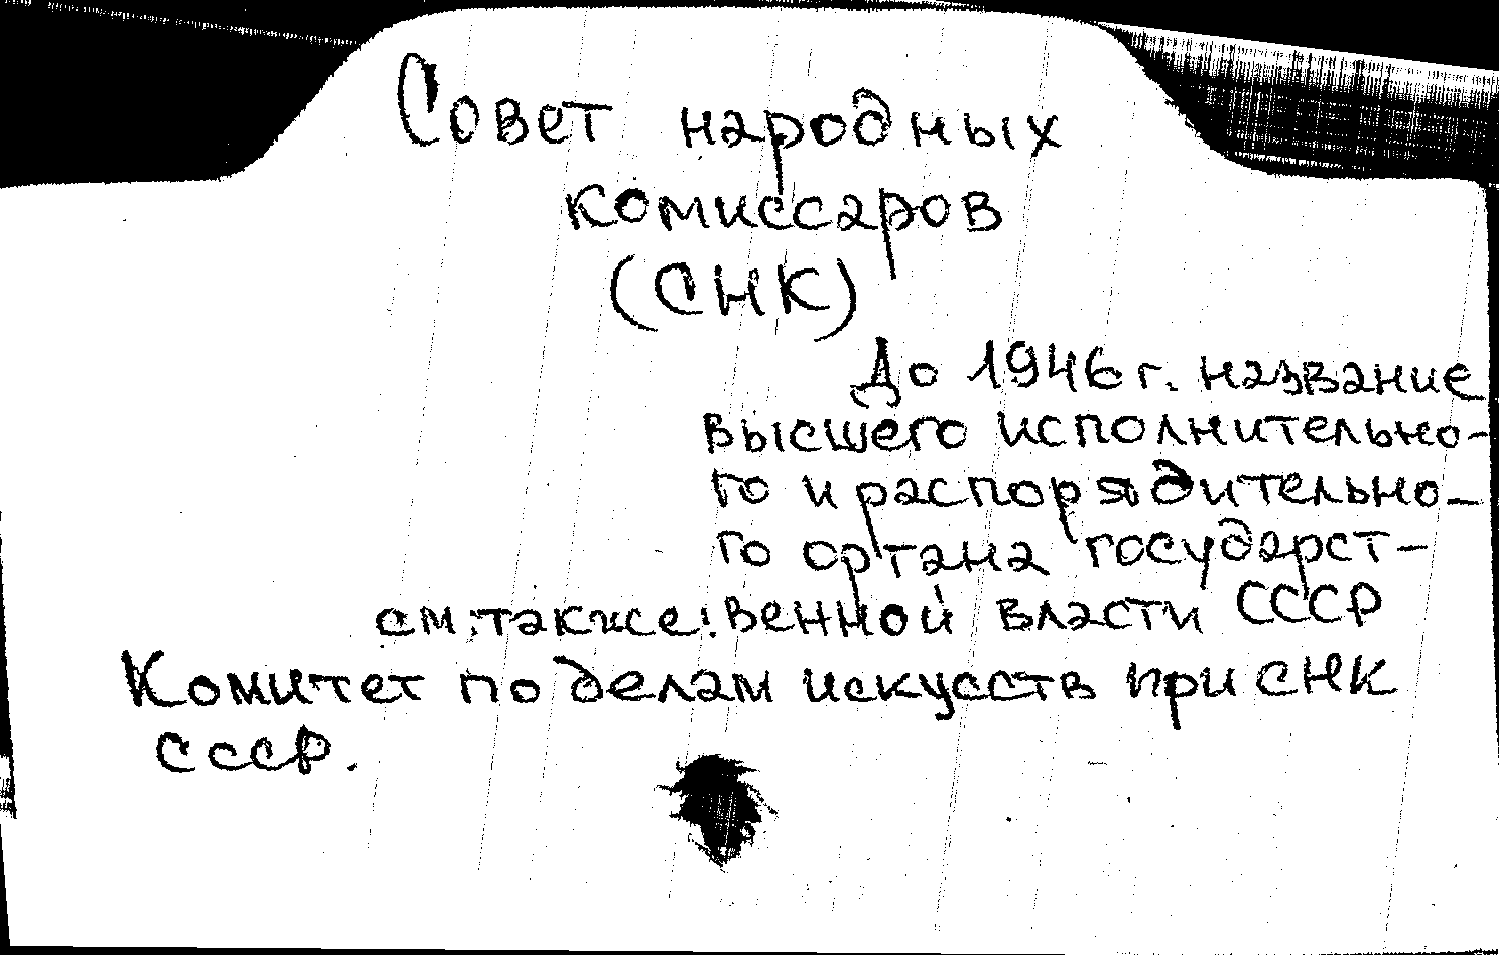 Совет народных
комиссаров
(СНК)
До 1946 г. название
высшего исполнительно-
го и распорядительно-
го органа государст-
см. также: венной власти СССР
Комитет по делам искусств при СНК
СССР.